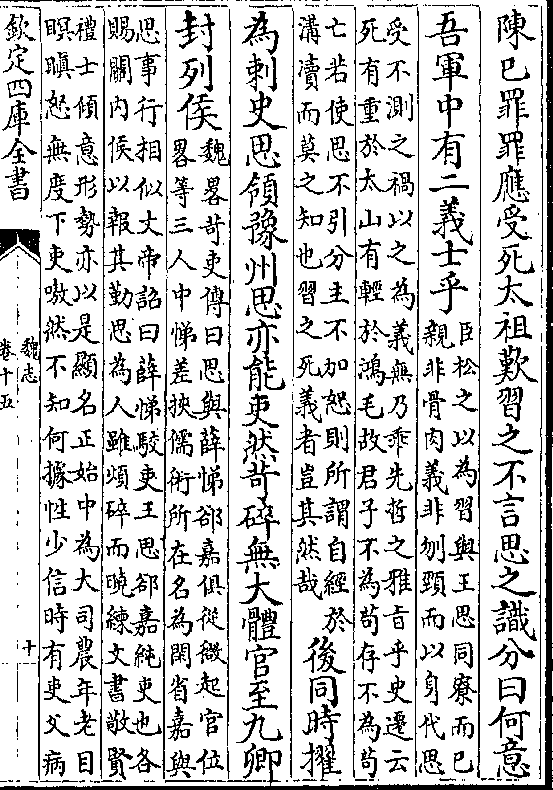 陳已罪罪應受死太祖歎習之不言思之識分曰何意
吾軍中有二義士乎
臣松之以為習與王思同寮而已
親非骨肉義非刎頸而以身代思
受不測之禍以之為義無乃乖先哲之雅旨乎史遷云
死有重於太山有輕於鴻毛故君子不為苟存不為苟
亡若使思不引分主不加恕則所謂自經於
溝瀆而莫之知也習之死義者豈其然哉
後同時擢
為刺史思領豫州思亦能吏然苛碎無大體官至九卿
封列侯
魏畧苛吏傳曰思與薛悌郤嘉俱從微起官位
畧等三人中悌差挾儒術所在名為閑省嘉與
思事行相似文帝詔曰薛悌駮吏王思郤嘉純吏也各
賜關內侯以報其勤思為人雖煩碎而曉練文書敬賢
禮士傾意形勢亦以是顯名正始中為大司農年老目
瞑瞋恕無度下吏嗷然不知何據性少信時有吏父病
欽定四庫全書
魏志
卷十五
十